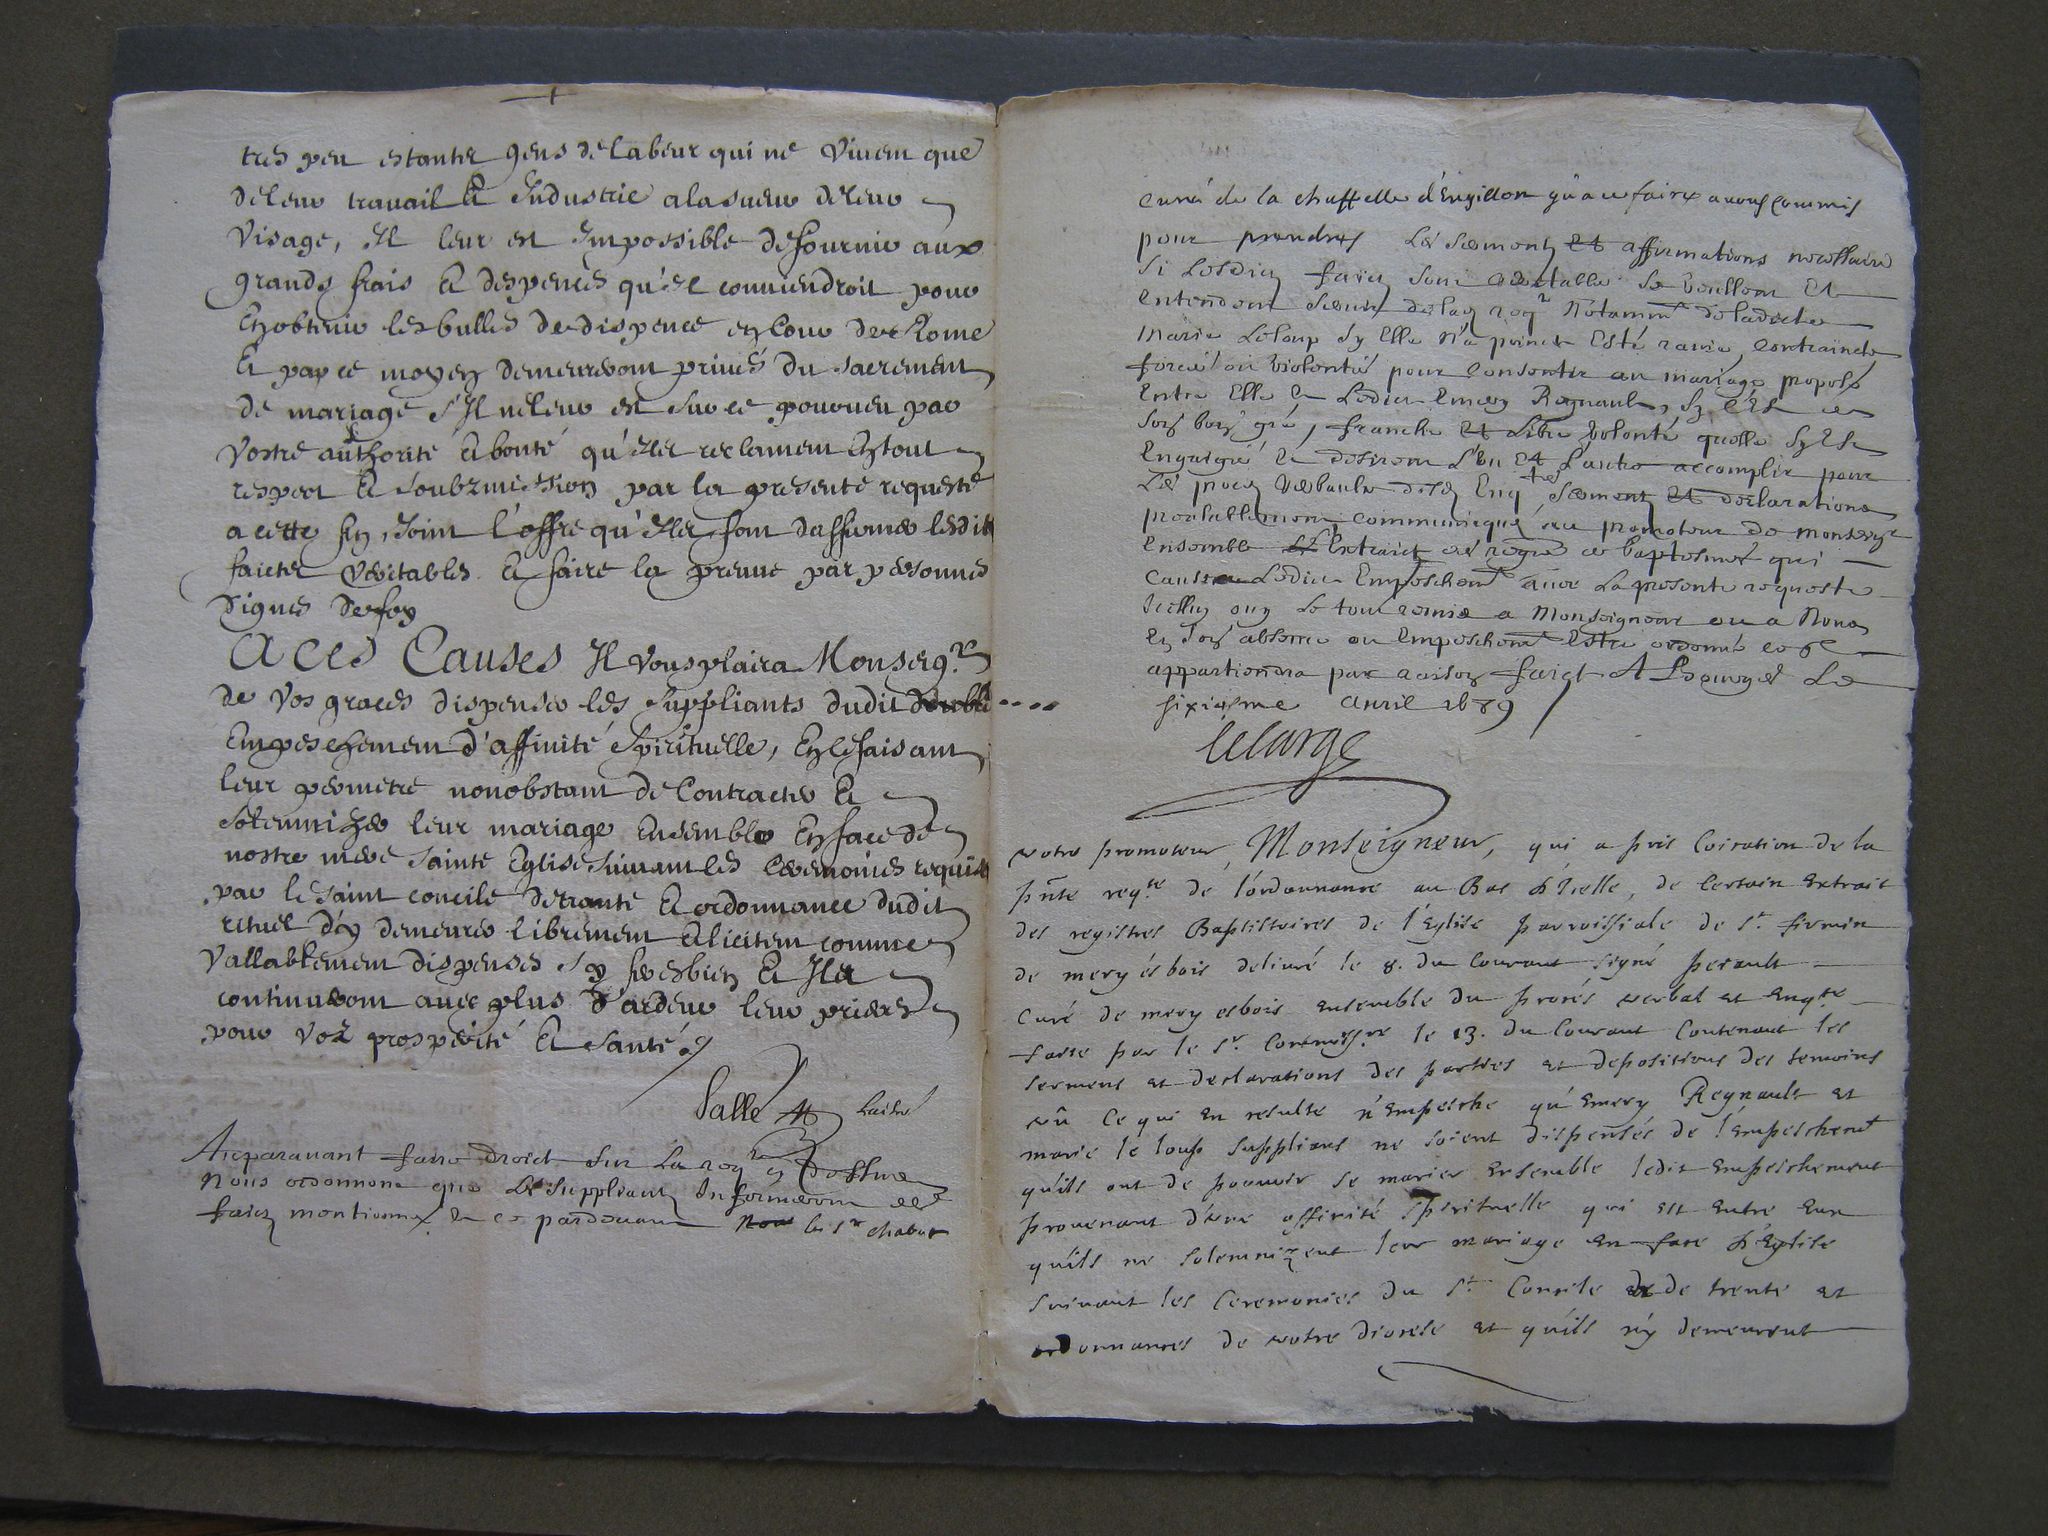 tres peu estantz gens de labeur qui ne vivent que
de leur travail et Industrie a la sueur de leur
visage, Il leur est Impossible de fournir aux
grands frais et despences qu'il conviendroit pour
En obtenir les bulles de dispence en Cour de Rome
Et par ce moyen demeureront privés du sacrement
de mariage s'Il ne leur est sur ce pourveu par
vostre authorité et bonté qu'Ils reclament En tout
respect et soubzmission par la presente requeste
a cette fin, Joint l'offre qu'Ils font d'affirmer lesdits
faictz veritables et faire la preuve par personnes
dignes de foy
A ces Causes Il vous plaira Monseigr
de vos graces dispenser les suppliants dudit double
Empeschement d'affinité spirituelle, En ce faisant
leur permetre nonobstant de Contracter et
solemnizer leur mariage Ensemble En face de
nostre mere sainte Eglise suivant les Ceremonies requises
par le saint concile de trante et ordonnance dudit
rituel d'y demeurer librement et licitem comme
vallablement dispensés sy ferez bien et Ils
continueront avec plus d'ardeur leur prieres
pour voz prosperité et santé
Salle
Auparavant faire droict sur la req
Nous ordonnons que les suppliantz Informeront des
faictz mentionnez en Ce pardevant le sr chabot
curé de la chappelle d'Engillon qu'a ce faire avons commis
pour prendre les sermentz et affirmations necessaires
si lesdictz faictz sont veritables se veullent et
entendent servir de la req Notamm de ladicte
Marie Leloup sy Elle n'a poinct Esté ravie, contraincte
forcée ou violentée pour consentir au mariage proposé
Entre Elle et Ledict Emery Regnault, sy c'Est de
son bon gré, franche et libre volonté quelle sy Est
Engaigée et desirent l'Un et l'autre accomplir pour
les proces verbaulx desd Enqtes serment et declarations
prealablement communicqué au promoteur de monseigr
Ensemble Extraict des regres de baptesmes qui
cause Ledict Empeschemt avec la presente requeste
Icelluy ouy le tout remis a Monseigneur ou a Nous
En son absence ou Empeschemt Estre ordonné ce q
appartiendra par raison faict A Bourges Le
sixiesme avril 1679
Lelarge
votre promoteur, Monseigneur, qui a pris Coication de la
pnte reqte de l'ordonnance au Bas d'Icelle, de certain Extrait
des registres Baptistoires de l'Eglise parroissiale de St firmin
de mery és bois delivré le 8. du Courant signé perault
Curé de mery es bois Ensemble du procés verbal et Enqte
faite par le Sr Commissre le 13. du Courant Contenant les
sermens et declarations des parties et depositions des temoins
vû Ce qui En resulte n'Empesche qu'Emery Regnault et
marie le loup supplians ne soient dispensés de l'empeschemt
qu'ils ont de pouvoir se marier Ensemble ledit Empeschement
provenant d'une affinité spirituelle qui est Entre Eux
qu'ils ne solemnizent leur mariage En face d'Eglise
suivant les Ceremonies du St Concile de trente et
ordonnances de votre diocese et qu'ils n'y demeurent